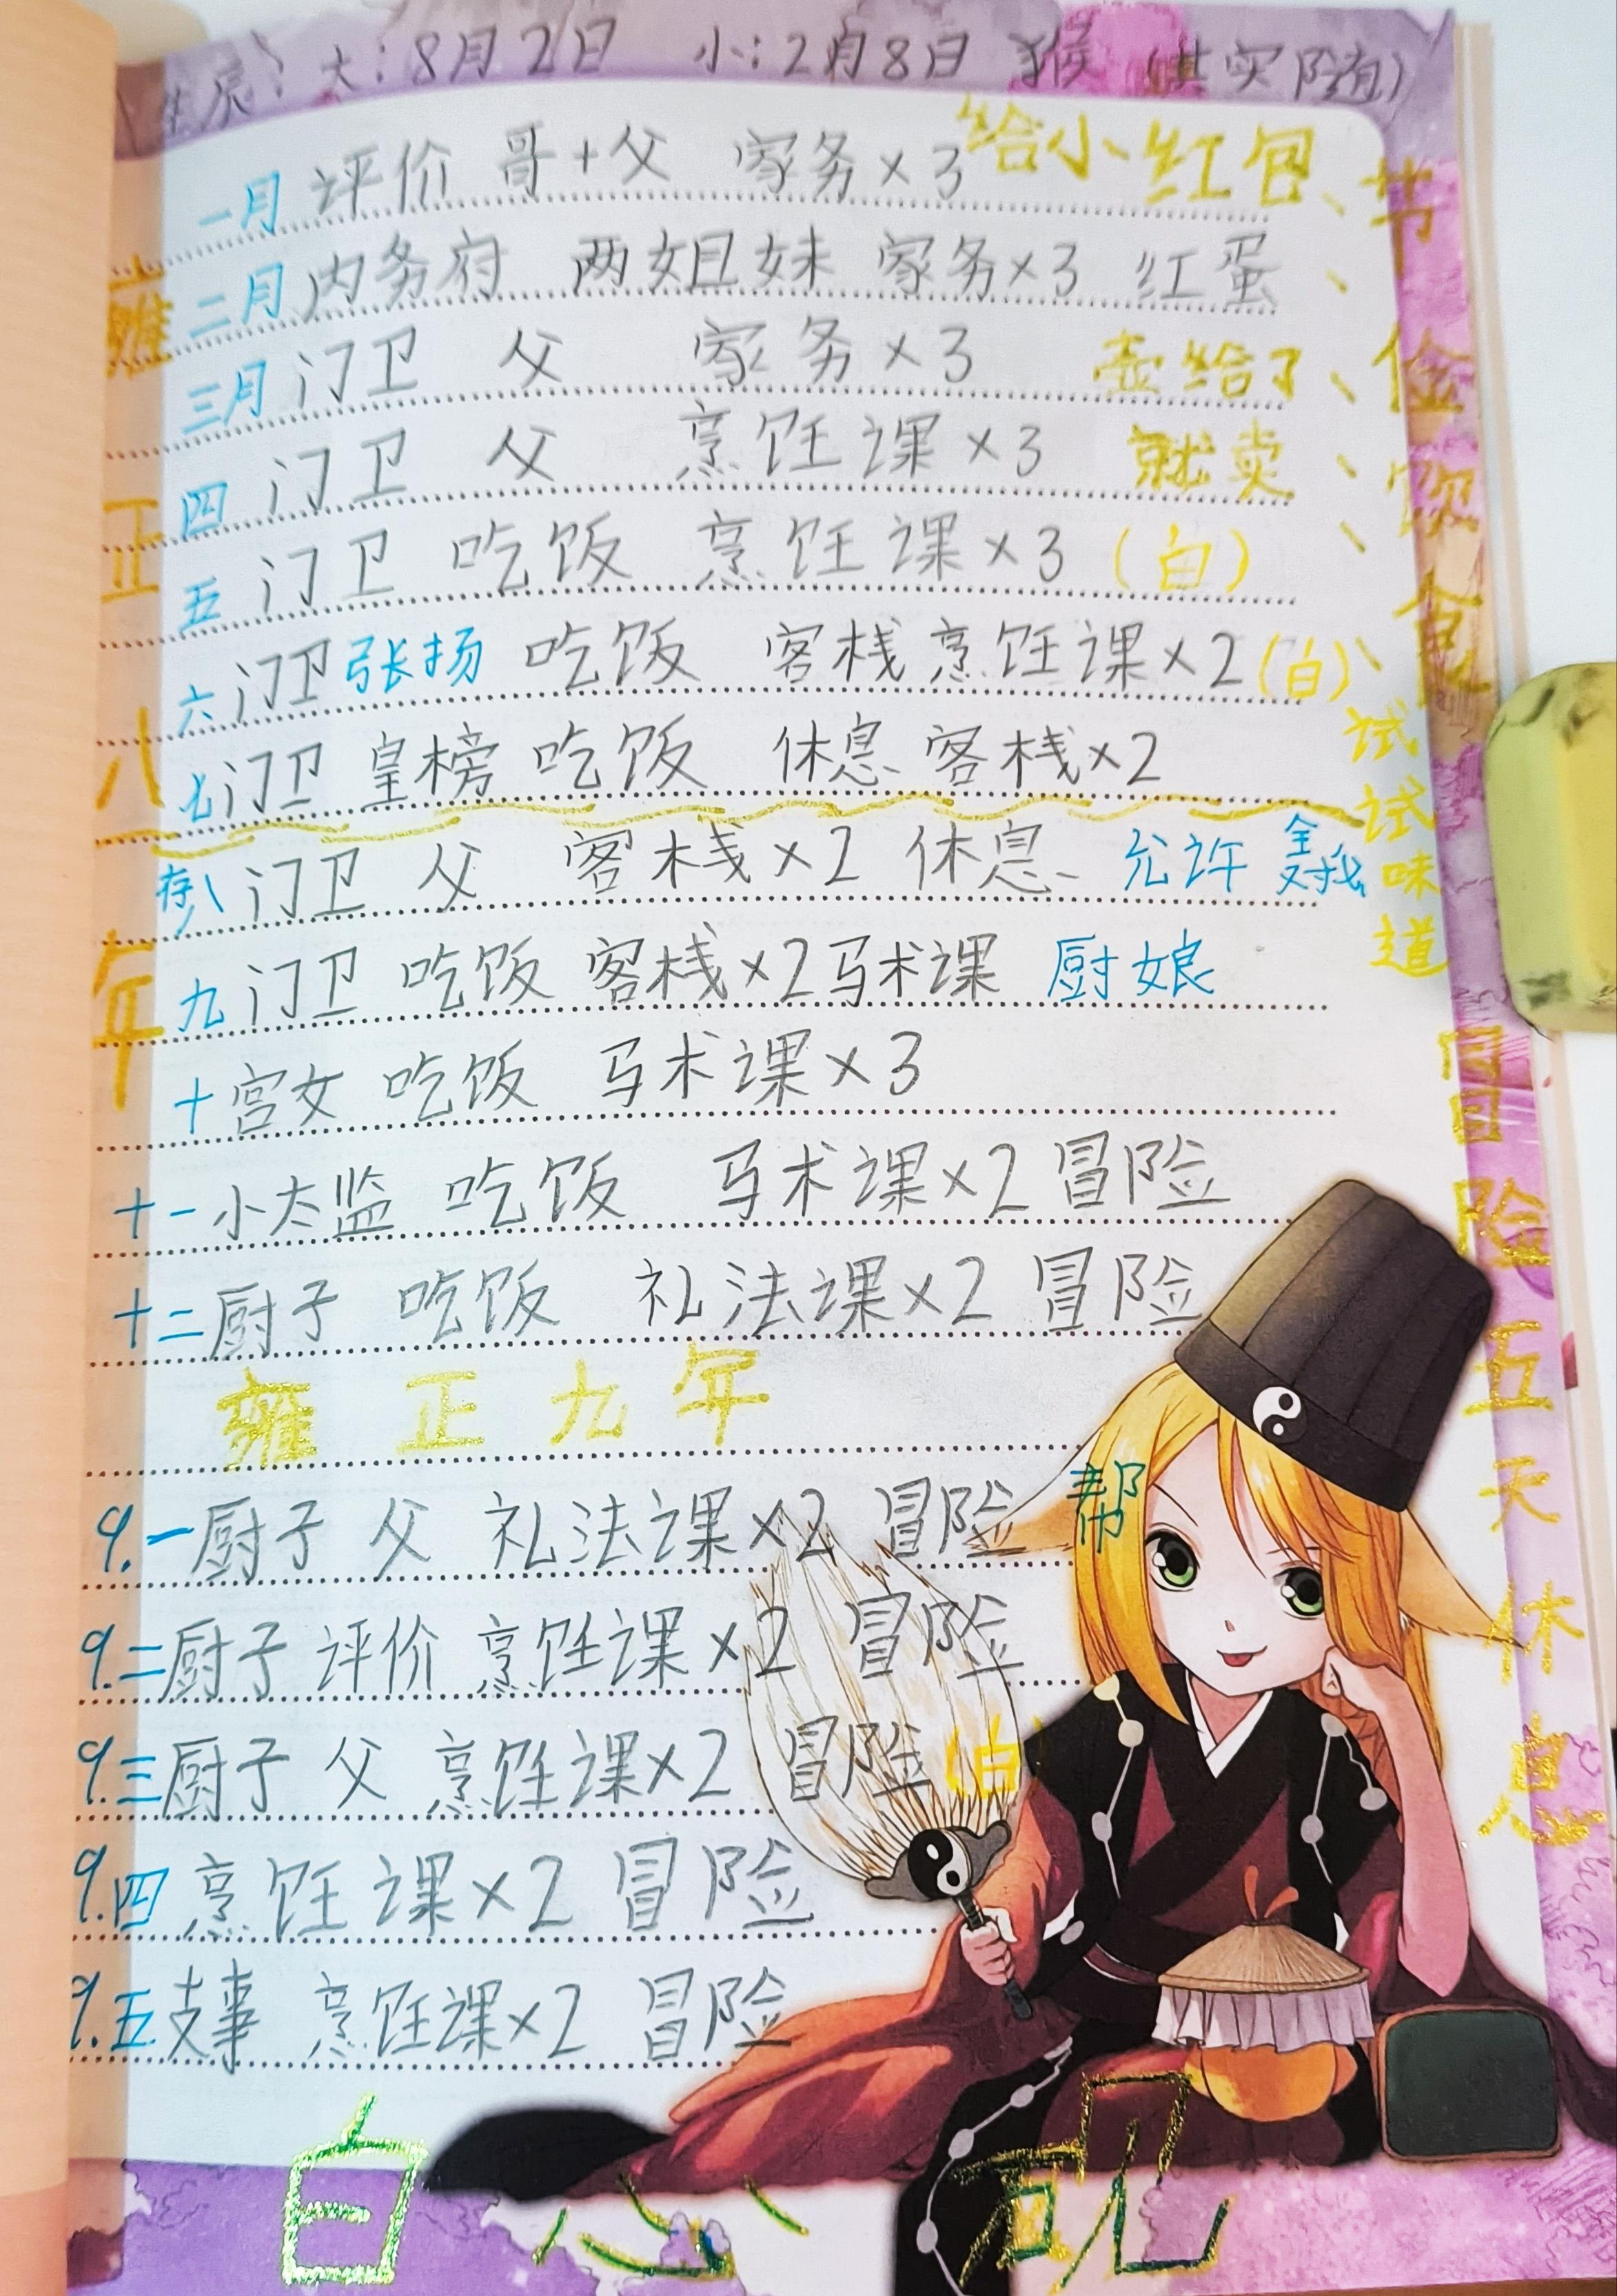 生辰：大：8月2日 小：2月8日 猴（其实随）
一月 评价 哥+父 家务×3 给小红包、
二月 内务府 两姐妹 家务×3 红蛋
三月 门卫 父 家务×3 壶给了
四 门卫 父 烹饪课×3 就卖
五 门卫 吃饭 烹饪课×3（白）
六 门卫 张扬 吃饭 客栈 烹饪课×2（白）
七 门卫 皇榜 吃饭 休息 客栈×2
存 八 门卫 父 客栈×2 休息 允许
九 门卫 吃饭 客栈×2 马术课 厨娘
十 宫女 吃饭 马术课×3
十一 小太监 吃饭 马术课×2 冒险
十二 厨子 吃饭 礼法课×2 冒险
雍正九年
9.一 厨子 父 礼法课×2 冒险 帮
9.二 厨子 评价 烹饪课×2 冒险
9.三 厨子 父 烹饪课×2 冒险（白）
9.四 烹饪课×2 冒险
9.五 支事 烹饪课×2 冒险
雍正八年
节俭饮食
试试味道
冒险五天休息
白心